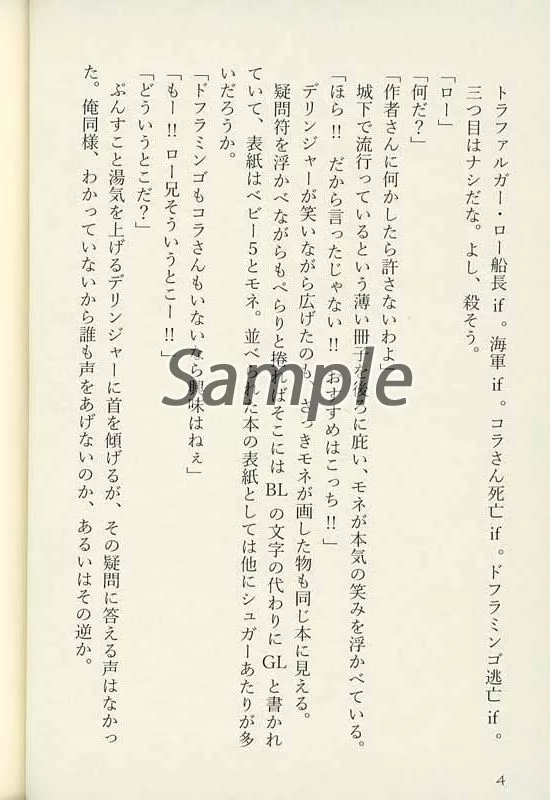 トラファルガー・ロー船長if。海軍if。コラさん死亡if。ドフラミンゴ逃亡if。
三つ目はナシだな。よし、殺そう。
「ロー」
「何だ？」
「作者さんに何かしたら許さないわよ」
城下で流行っているという薄い冊子を後ろに庇い、モネが本気の笑みを浮かべている。
「ほら!! だから言ったじゃない!! おすすめはこっち!!」
デリンジャーが笑いながら広げたのも、さっきモネが画した物も同じ本に見える。
疑問符を浮かべながらもぺらりと捲ればそこにはBLの文字の代わりにGLと書かれ
ていて、表紙はベビー5とモネ。並べられた本の表紙としては他にシュガーあたりが多
いだろうか。
「ドフラミンゴもコラさんもいないなら興味はねぇ」
「もー!! ロー兄そういうとこー!!」
「どういうとこだ？」
ぷんすこと湯気を上げるデリンジャーに首を傾げるが、その疑問に答える声はなかっ
た。俺同様、わかっていないから誰も声をあげないのか、あるいはその逆か。
Sample
4